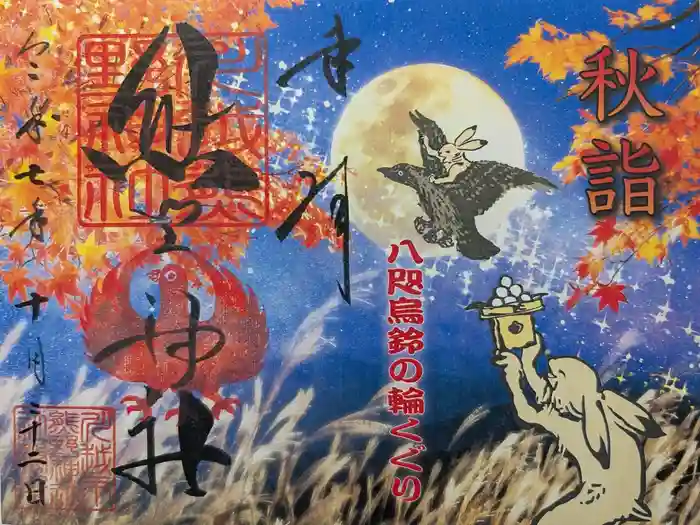 秋詣
八咫烏鈴の輪くぐり
奉拝
熊野神社
令和七年十月二十二日
川越市
熊野神社